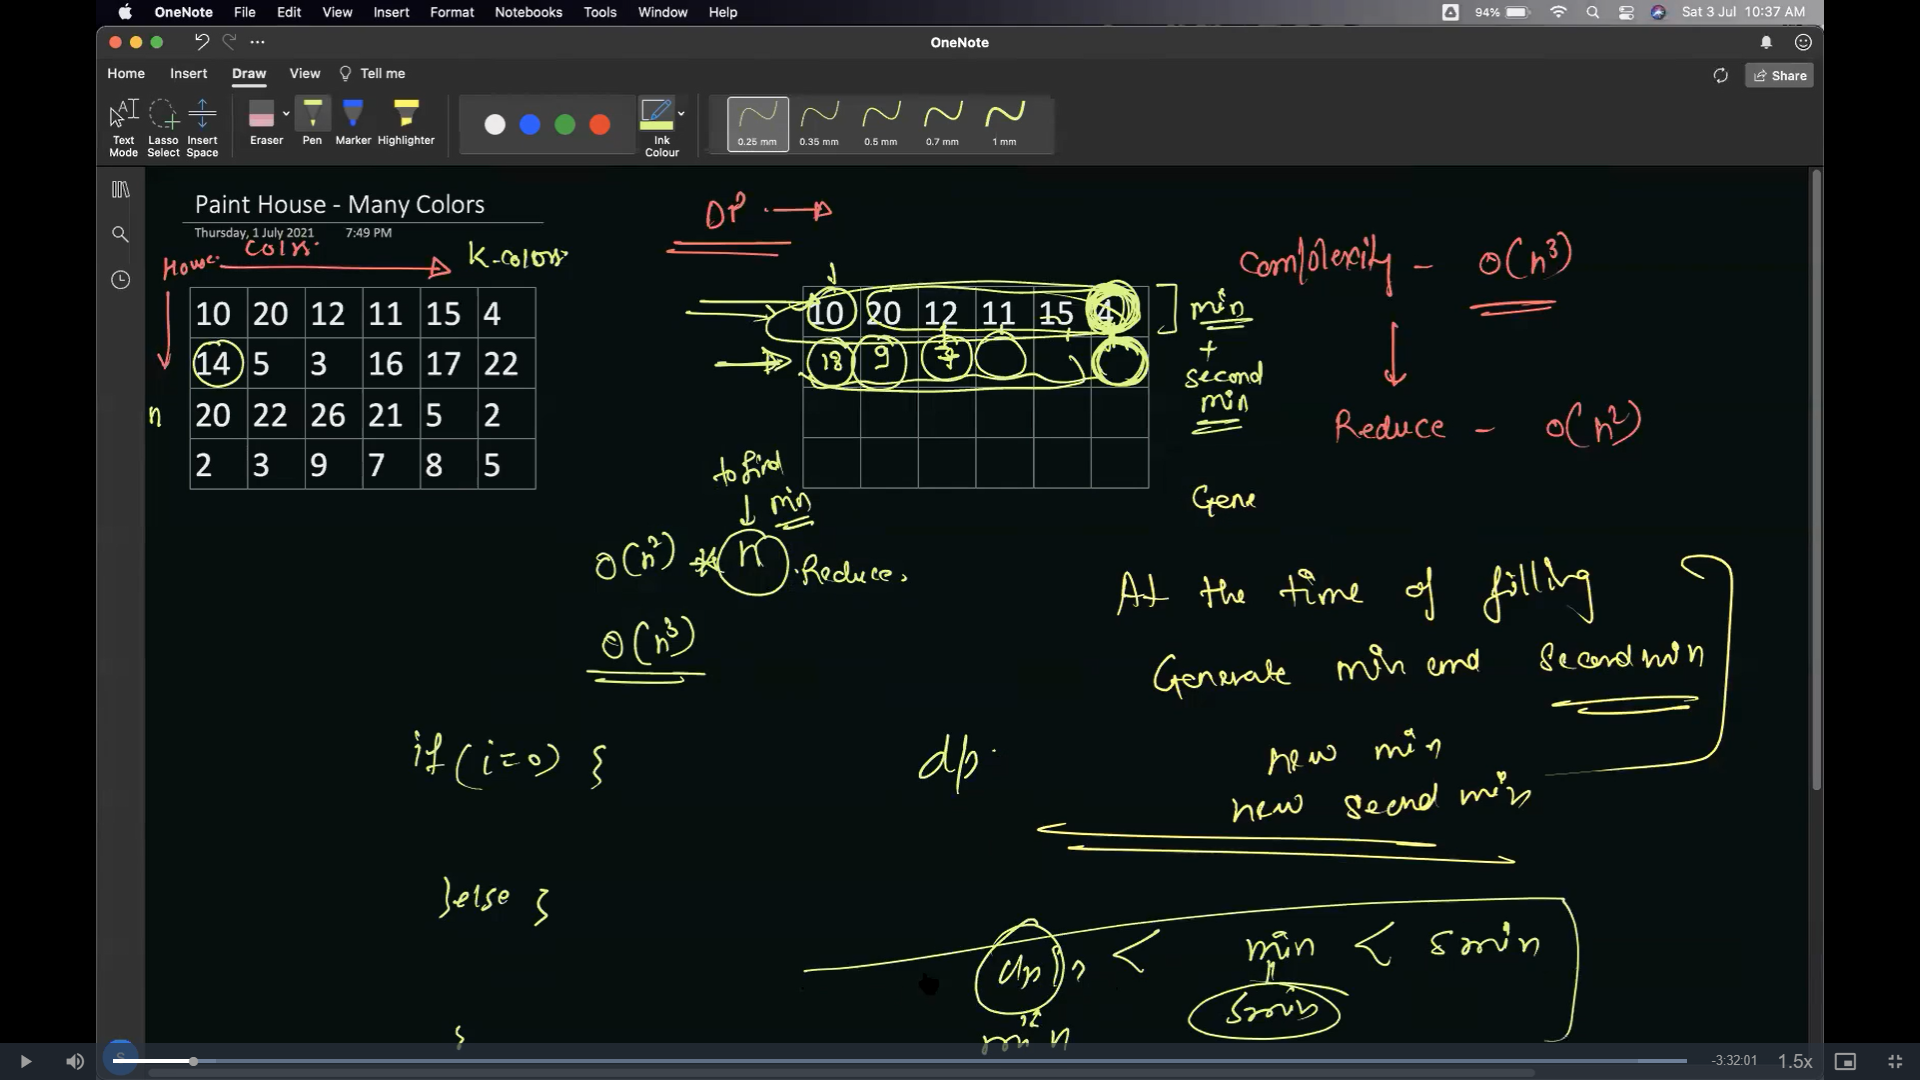 OneNote File Edit View Insert Format Notebooks Tools Window Help 94% Sat 3 Jul 10:37 AM
OneNote
Home Insert Draw View Tell me Share
Text Mode Lasso Select Insert Space Eraser Pen Marker Highlighter Ink Colour 0.25 mm 0.35 mm 0.5 mm 0.7 mm 1 mm
Paint House - Many Colors
Thursday, 1 July 2021 7:49 PM
DP
House K-colors
Complexity - O(n³)
10 20 12 11 15 4
14 5 3 16 17 22
20 22 26 21 5 2
2 3 9 7 8 5
n
10 20 12 11 15 4
18 9 7
min
+
second
min
Reduce - O(n²)
to find
min
Gene
O(n²) * n Reduce.
O(n³)
At the time of filling
Generate min and second min
new min
new second min
if (i=0) {
dp
}else {
dp < min < smin
smin
min
}
-3:32:01 1.5x